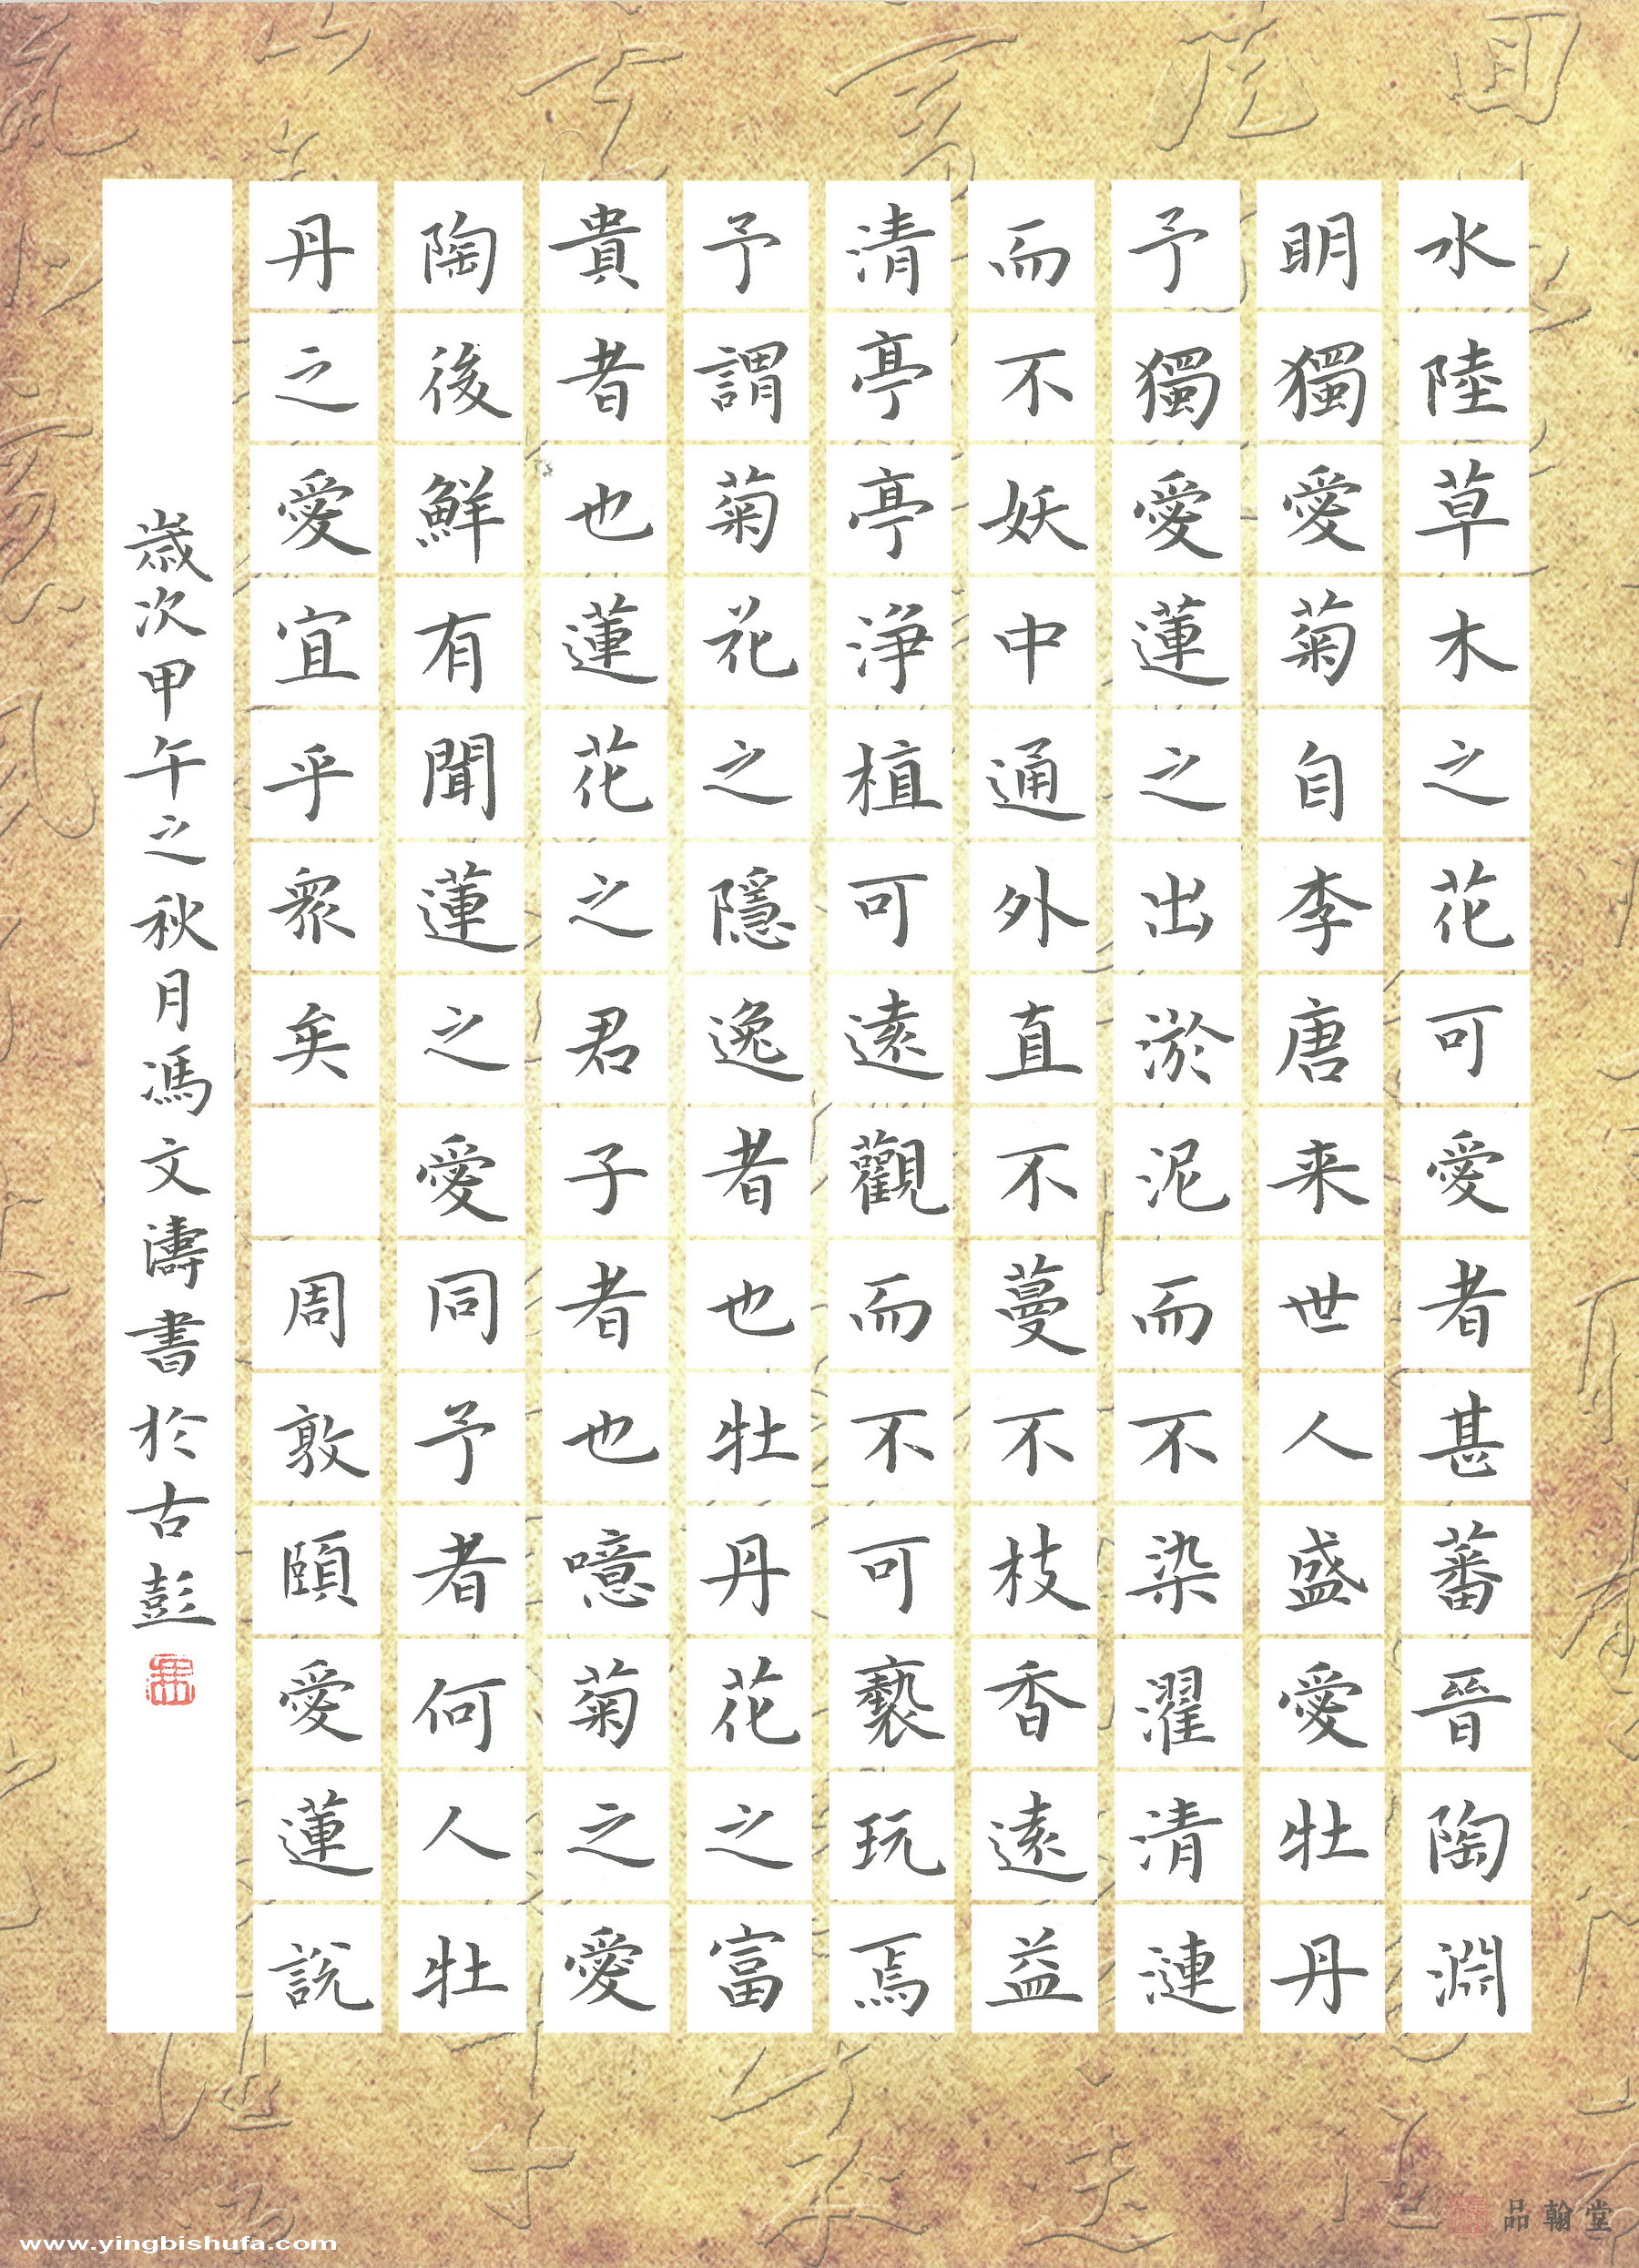 水陸草木之花可愛者甚蕃晉陶淵
明獨愛菊自李唐来世人盛愛牡丹
予獨愛蓮之出淤泥而不染濯清漣
而不妖中通外直不蔓不枝香遠益
清亭亭淨植可遠觀而不可褻玩焉
予謂菊花之隱逸者也牡丹花之富
貴者也蓮花之君子者也噫菊之愛
陶後鮮有聞蓮之愛同予者何人牡
丹之愛宜乎衆矣 周敦頤愛蓮說
歲次甲午之秋月馮文濤書於古彭
品翰堂
www.yingbishufa.com